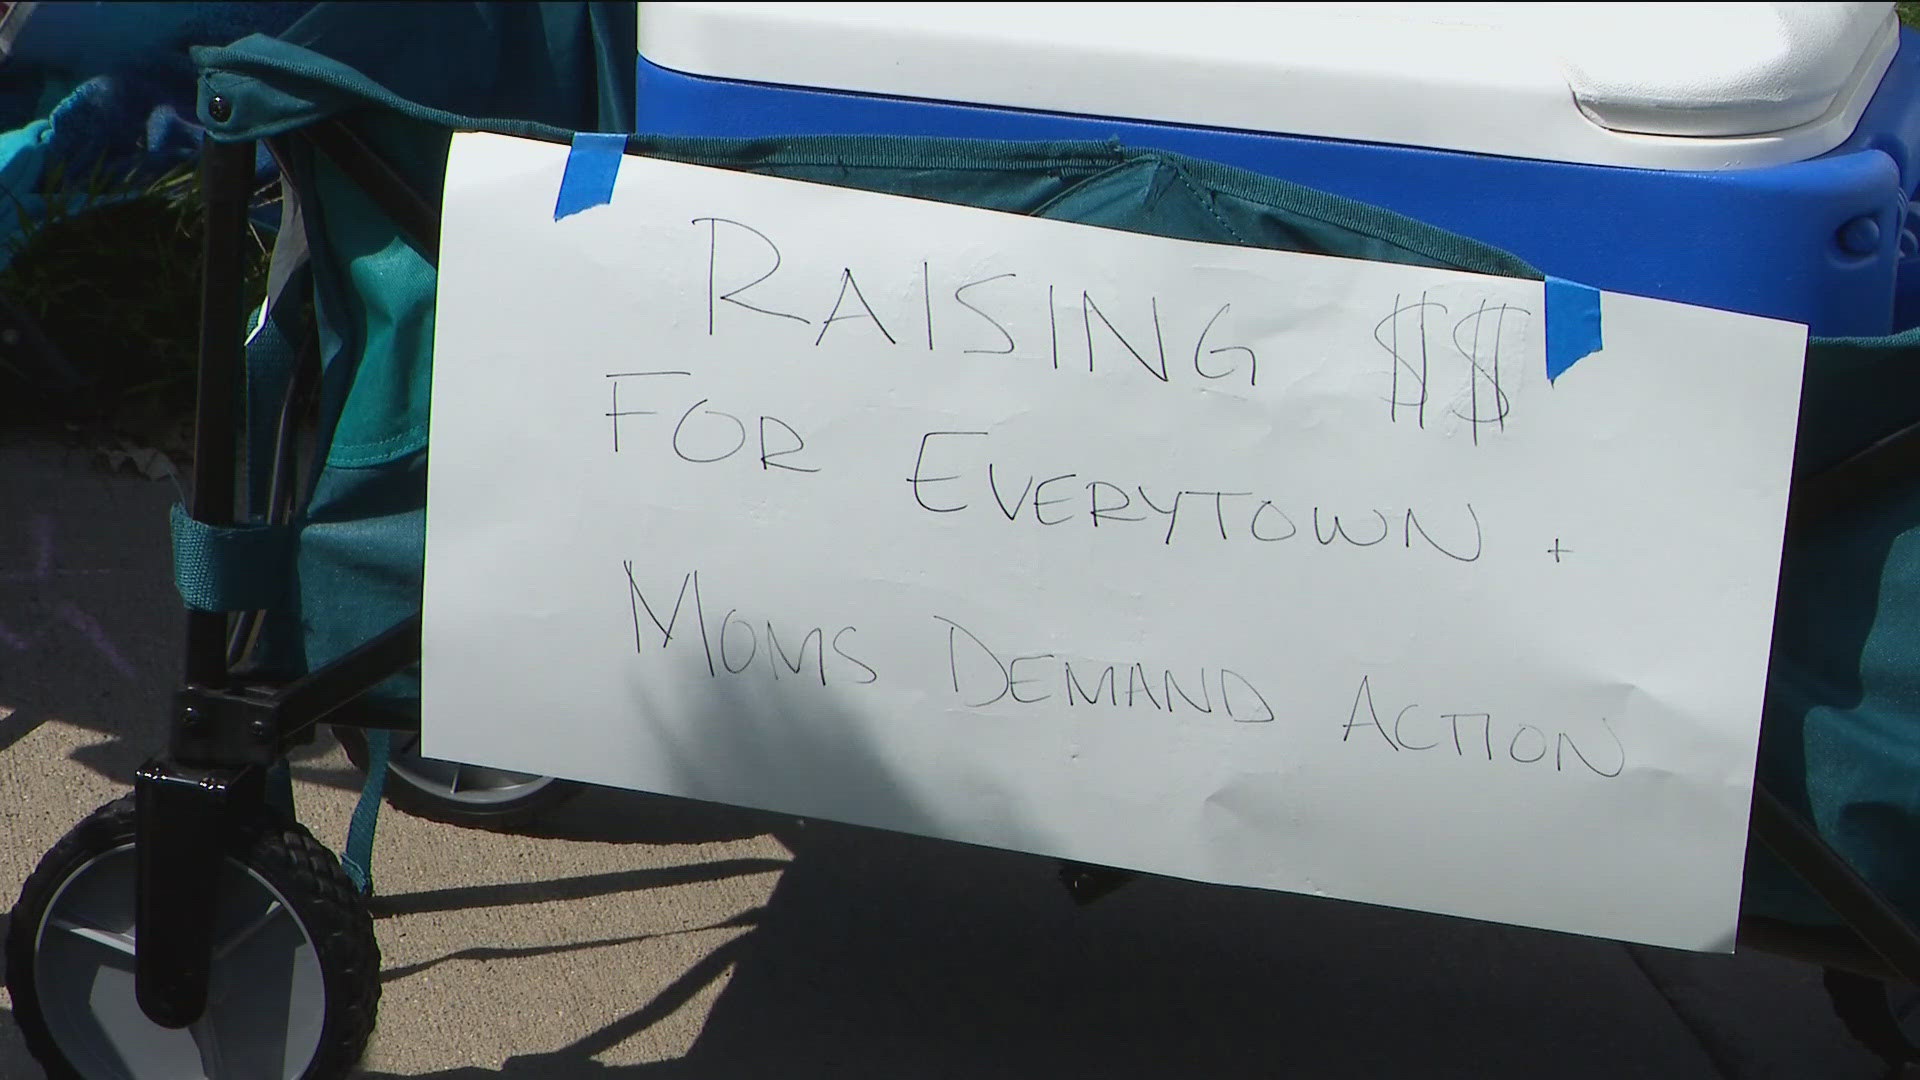 RAISING $$
FOR EVERYTOWN +
MOMS DEMAND ACTION